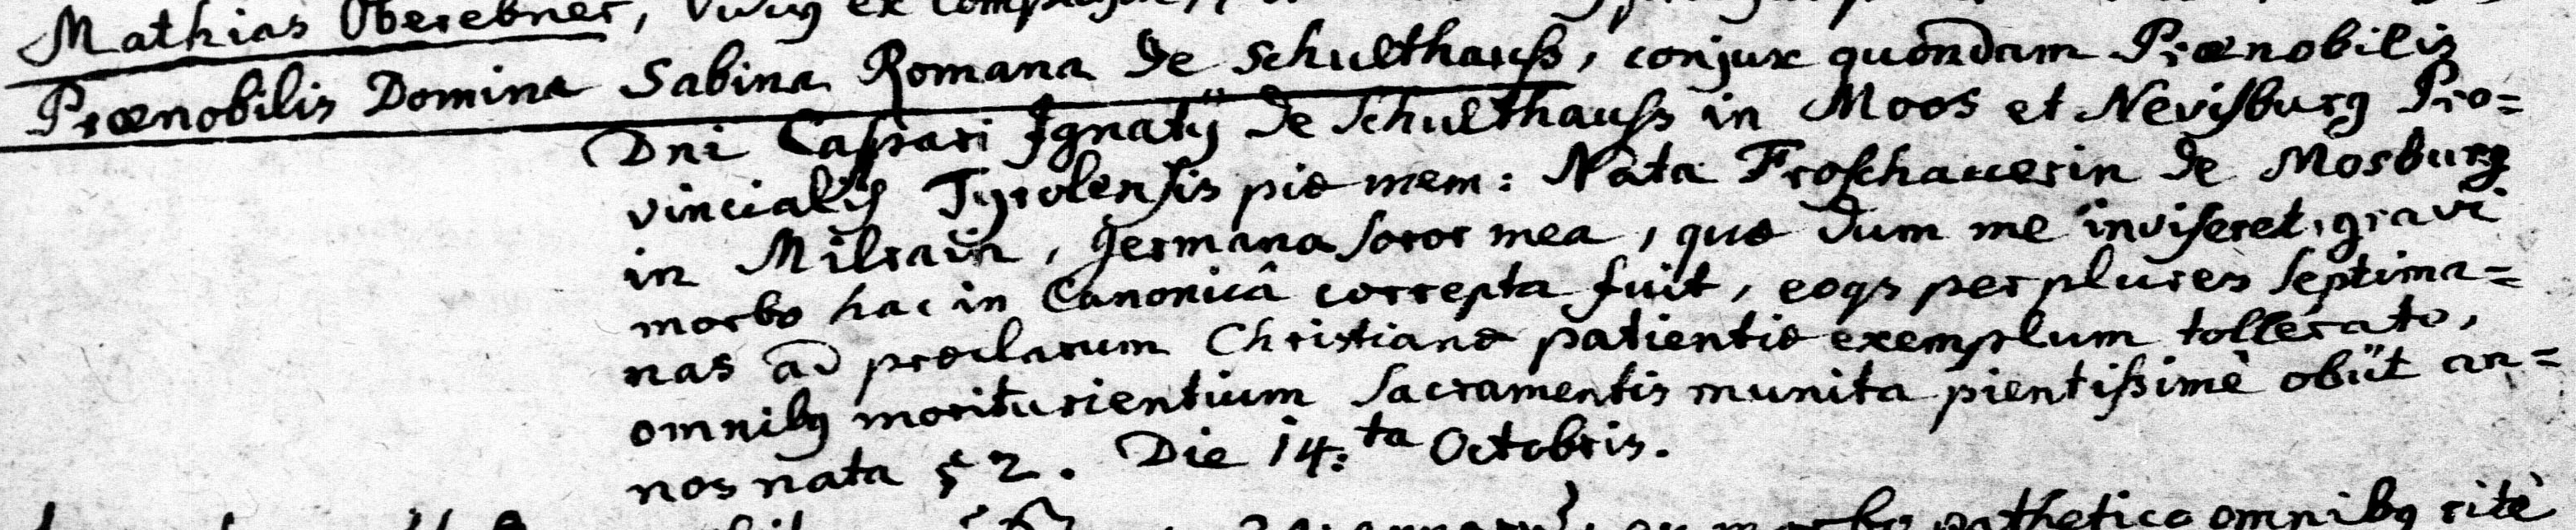 Mathias Oberebner, viduus ex
Prænobilis Domina Sabina Romana de Schulthauß, conjux quondam Prænobilis
Dni Caspari Ignatÿ de Schulthauß in Moos et Nevisburg Pro=
vincialis Tyrolensis piæ mem: Nata Froschauerin de Mosburg
in Milrain, germana soror mea, quæ dum me inviseret, gravi
morbo hac in Canonicâ correpta fuit, eoqs per plures septima=
nas ad præclarum Christianæ patientiæ exemplum tollerato,
omnibq moriturientium Sacramentis munita pientißimè obÿt an=
nos nata 52. Die 14:ta Octobris.
morbo pathetico omnibq ritè